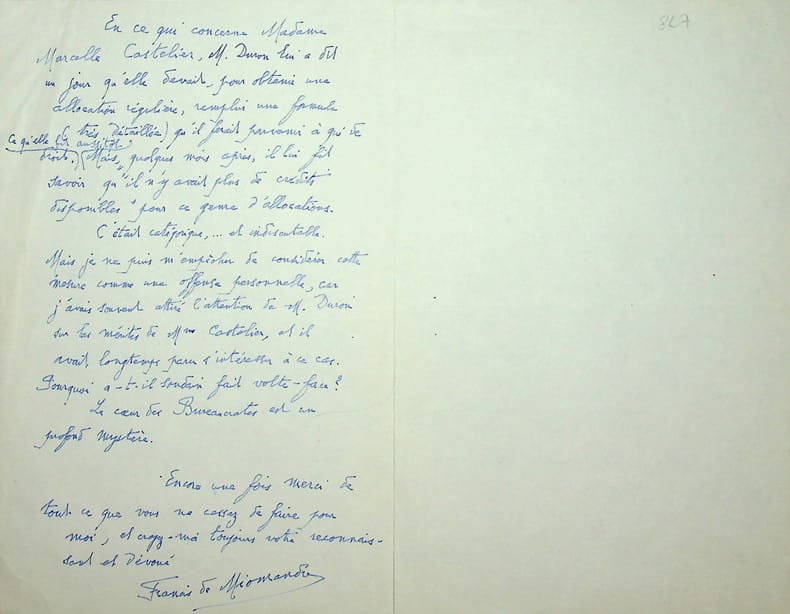 847
En ce qui concerne Madame
Marcelle Castelier, M. Duron lui a dit
un jour qu'elle devait, pour obtenir une
allocation régulière, remplir une formule
(très détaillée) qu'il ferait parvenir à qui de
Ce qu'elle fit aussitôt
droit. (Mais, quelques mois après, il lui fit
savoir qu'"il n'y avait plus de crédits
disponibles" pour ce genre d'allocations.
C'était catégorique,... et indiscutable.
Mais je ne puis m'empêcher de considérer cette
mesure comme une offense personnelle, car
j'avais souvent attiré l'attention de M. Duron
sur les mérites de Mme Castelier, et il
avait longtemps paru s'intéresser à ce cas.
Pourquoi a-t-il soudain fait volte-face?
Le cœur des Bureaucrates est un
profond mystère.
Encore une fois merci de
tout ce que vous ne cessez de faire pour
moi, et croyez-moi toujours votre reconnais-
sant et dévoué
Francis de Miomandre